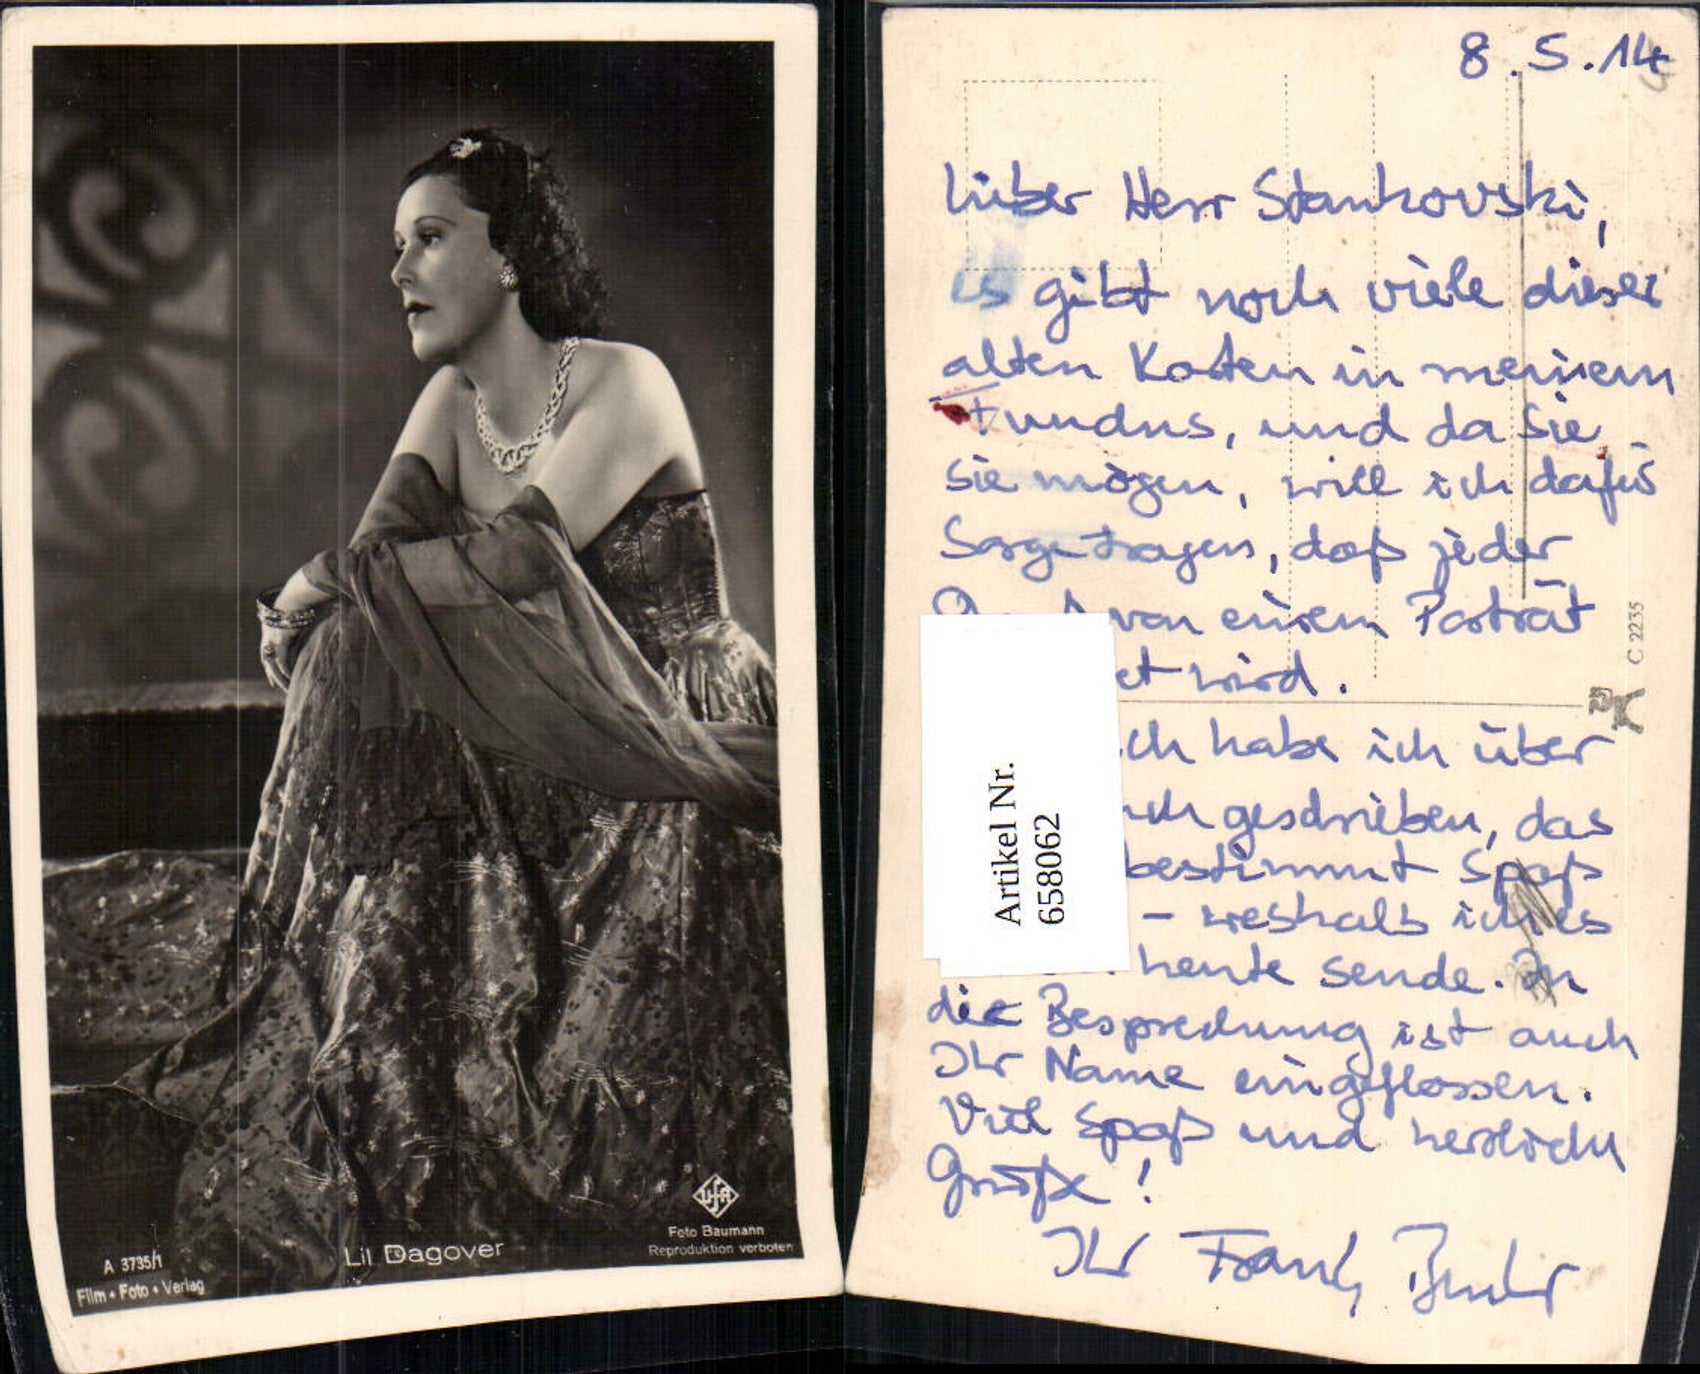 UfA
Foto Baumann
Reproduktion verboten
Lil Dagover
A 3735/1
Film • Foto • Verlag
8.5.14
Lieber Herr Stankovski,
es gibt noch viele dieser
alten Karten in meinem
Fundus, und da Sie
sie mögen, will ich dafür
Sorge tragen, daß jeder
von einem Porträt
et wird.
ch habe ich über
ch geschrieben, das
bestimmt Spaß
– weshalb ich es
heute sende. In
die Besprechung ist auch
Ihr Name eingeflossen.
Viel Spaß und herzliche
Grüße!
Ihr Frank
Artikel Nr.
658062
C 2235